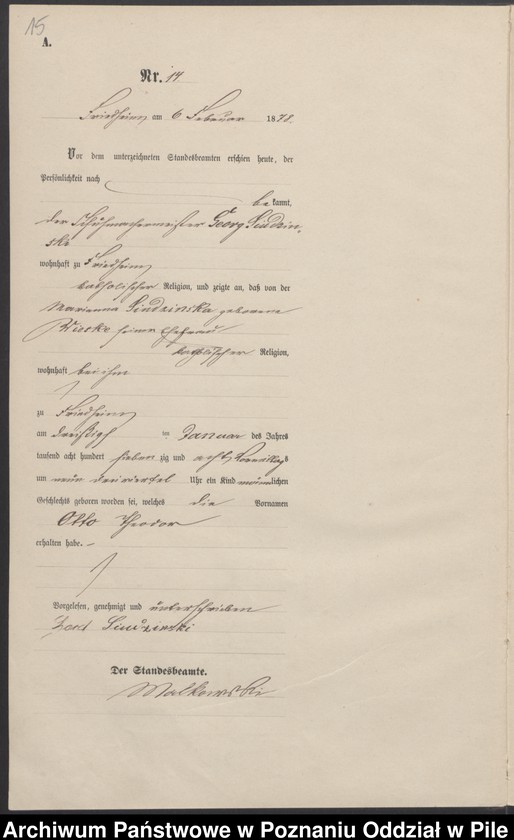 15
A.
Nr. 14
Friedheim am 6 Februar 1878.
Vor dem unterzeichneten Standesbeamten erschien heute, der
Persönlichkeit nach
bekannt,
der Schuhmachermeister Georg
ski
wohnhaft zu Friedheim
katholischer Religion, und zeigte an, daß von der
Marianna geborene
seiner Ehefrau
katholischer Religion,
wohnhaft bei ihm
zu Friedheim
am dreißigst im Januar des Jahres
tausend acht hundert sieben zig und acht Vormittags
um neun drei viertel Uhr ein Kind männlichen
Geschlechts geboren worden sei, welches die Vornamen
Otto Theodor
erhalten habe. –
Vorgelesen, genehmigt und unterschrieben
Der Standesbeamte.
Malkowski
Archiwum Państwowe w Poznaniu Oddział w Pile